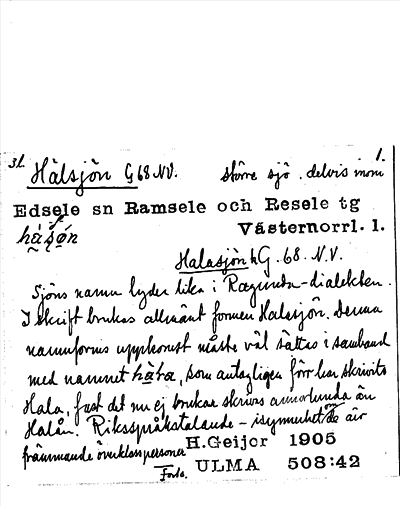 31.
1.
Hälsjön G 68 N.V. större sjö, delvis inom
Edsele sn Ramsele och Resele tg
Västernorrl. l.
Halasjön h G. 68. N.V.
Sjöns namn lyder lika i Ragunda-dialekten.
I skrift brukas allmänt formen Halsjön. Denna
namnforms uppkomst måste väl sättas i samband
med namnet som antagligen förr har skrivits
Hala, fast det nu ej brukar skrivas annorlunda än
Halån. Riksspråkstalande - isynnerhet de är
främmande överklasspersoner
H.Geijer 1905
Forts. ULMA 508:42